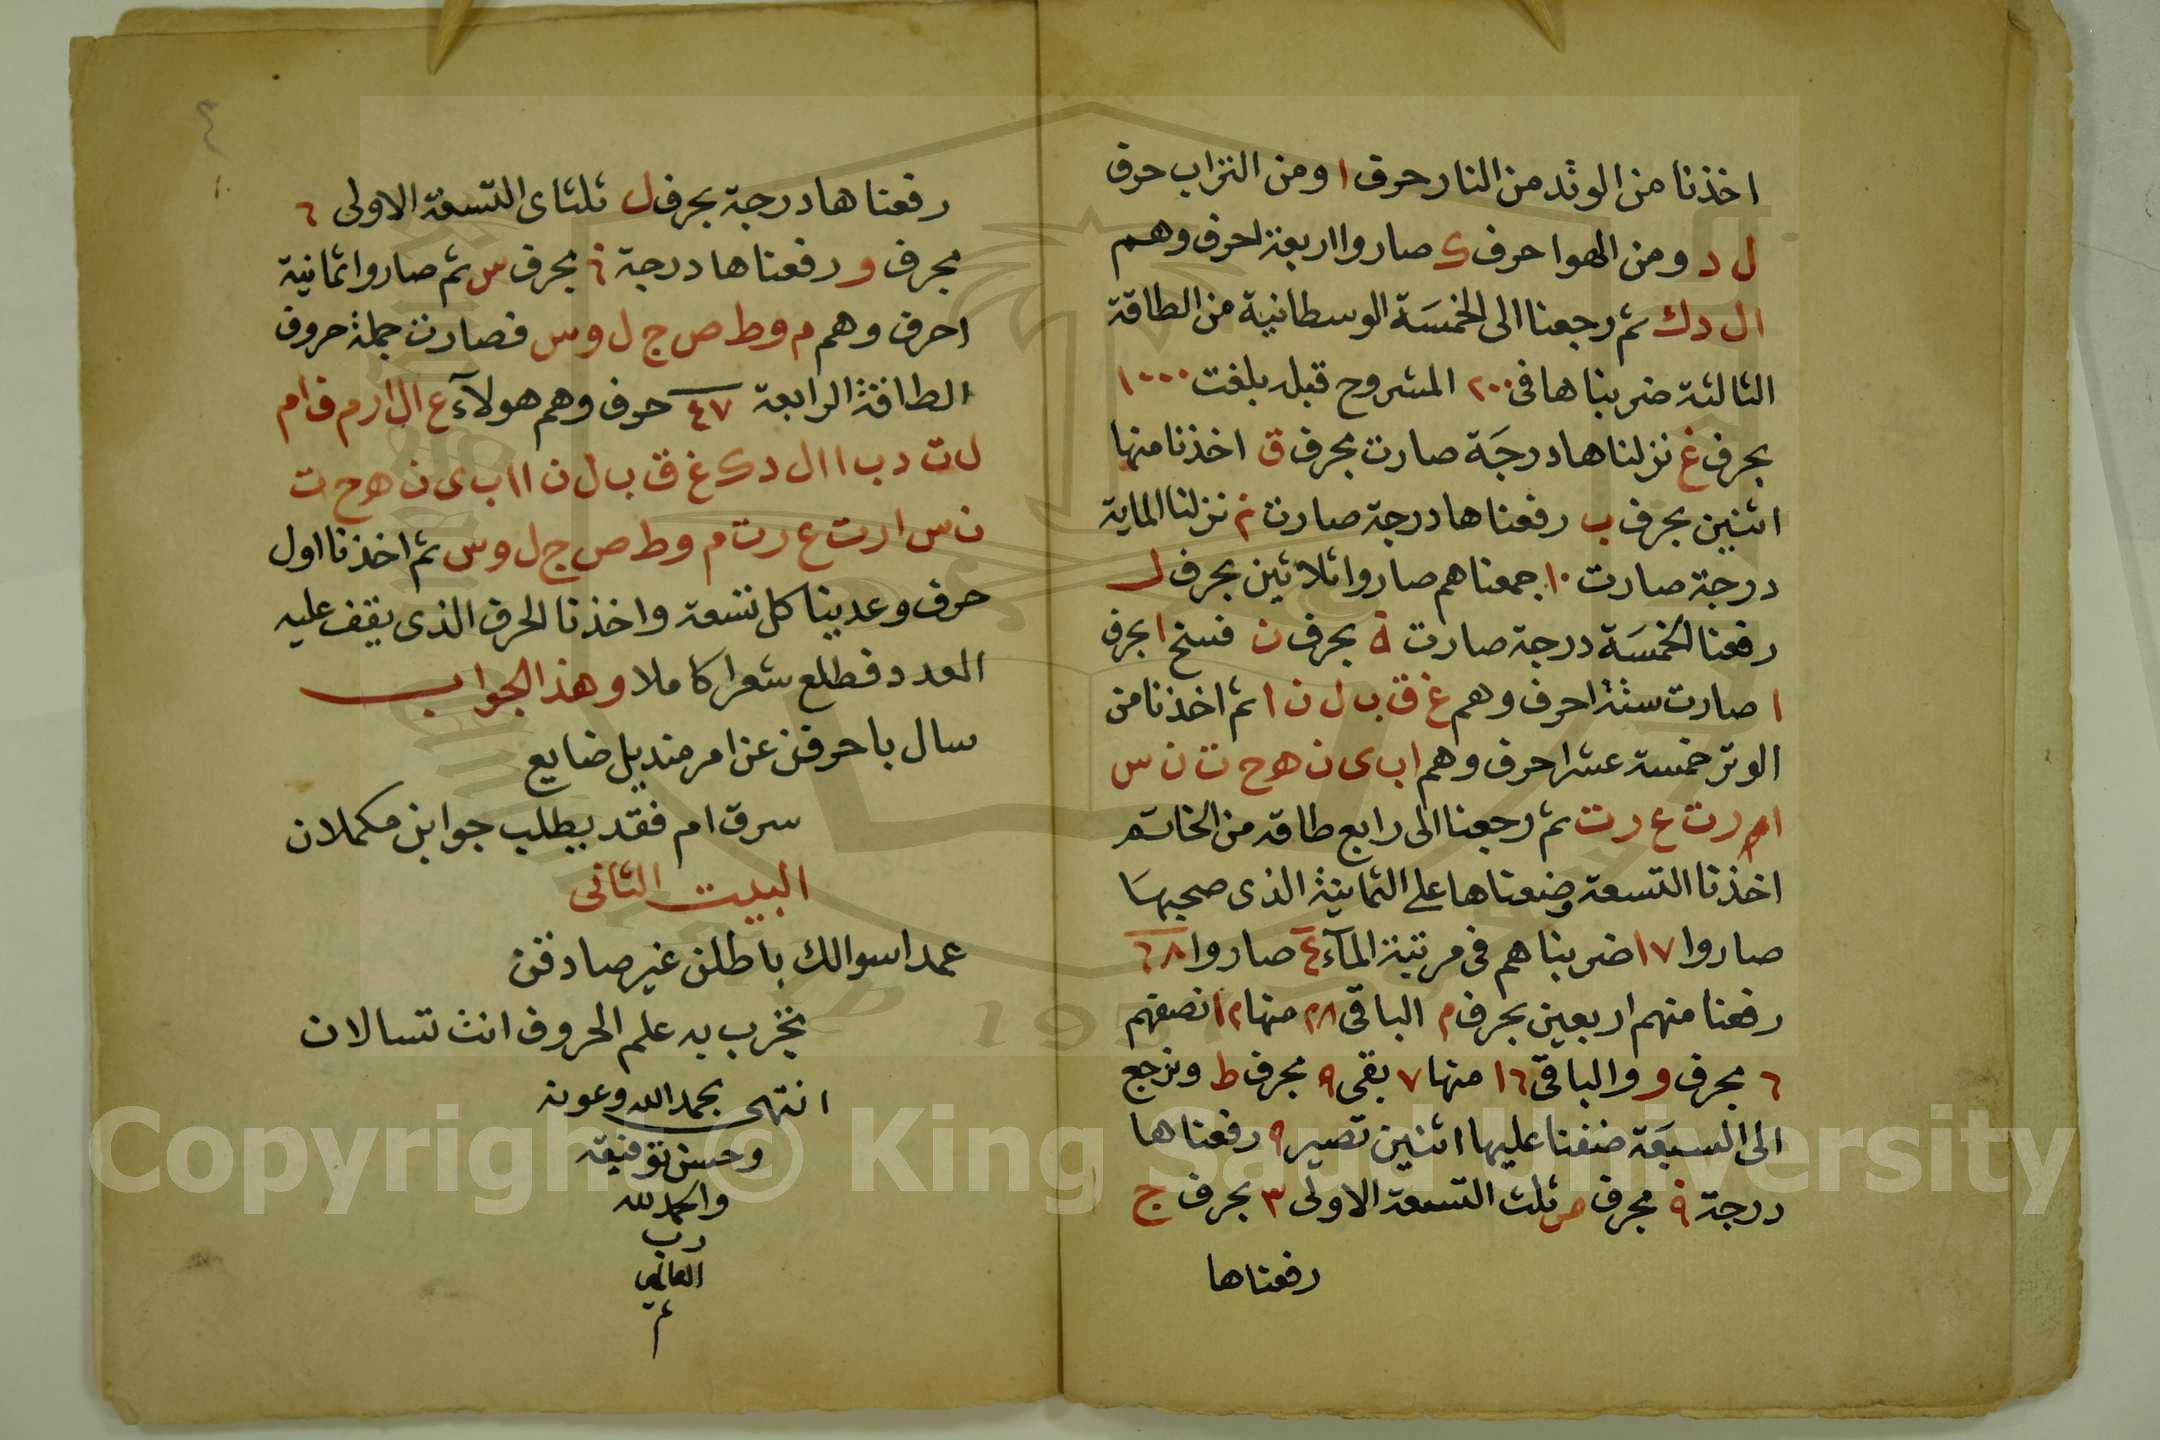 اخذنا من الوتد من النار حرف ا ومن التراب حرف
ل د ومن الهوا حرف ك صاروا اربعة احرف وهم
ال د ك ثم رجعنا الى الخمسة الوسطانية من الطاقة
الثالثة ضربناها فى ٢٠٠ المشروح قبله بلغت ١٠٠٠
بحرف غ نزلناها درجة صارت بحرف ق اخذنا منها
اثنين بحرف ب رفعناها درجة صارت نزلنا الماية
درجة صارت ١٠ جمعناهم صاروا ثلاثين بحرف ل
رفعنا الخمسة درجة صارت بحرف ن فسخ ا بحرف
ا صارت ستة احرف وهم غ ق ب ل ن ا ثم اخذنا من
الوتر خمسة عشر احرف وهم ا ب ى ن ه ح ت ن س
ا ر ت ع ر ت ثم رجعنا الى رابع طاقه من الخاتم
اخذنا التسعة وضعناها على الثمانية الذى صحبها
صاروا ١٧ ضربناهم فى مرتبة المآء ٤ صاروا ٦٨
رفعنا منهم اربعين بحرف م الباقى ٢٨ منها ١٢ نصفهم
٦ بحرف و والباقى ١٦ منها ٧ بقى ٩ بحرف ط ونرجع
الى السبعة ضفنا عليها اثنين تصير ٩ رفعناها
درجة بحرف ص ثلث التسعة الاولى ٣ بحرف ج
رفعناها
٤
رفعناها درجة بحرف ل ثلثاى التسعة الاولى ٦
بحرف و رفعناها درجة بحرف س ثم صاروا ثمانية
احرف وهم م و ط ص ج ل و س فصارت جملة حروف
الطاقة الرابعة ٤٧ حرف وهم هولآء ع ال ا ر م ف ا م
ل ت د ب ا ا ل د ك غ ق ب ل ن ا ا ب ى ن ه ح ت
ن س ا ر ت ع ر ت م و ط ص ج ل و س ثم اخذنا اول
حرف وعدينا كل تسعة واخذنا الحرف الذى يقف عليه
العدد فطلع شعرا كاملا وهذا الجواب
سال باحرفن عن امر منديل ضايع
سرق ام فقد يطلب جوابن مكملان
البيت الثانى
عمدا سوالك باطلن غير صادقن
تخرب به علم الحروف انت تسالان
انتهى بحمد الله وعونه
وحسن توفيقه
والحمد لله
رب
العالمين
م
Copyright © King Saud University
1957